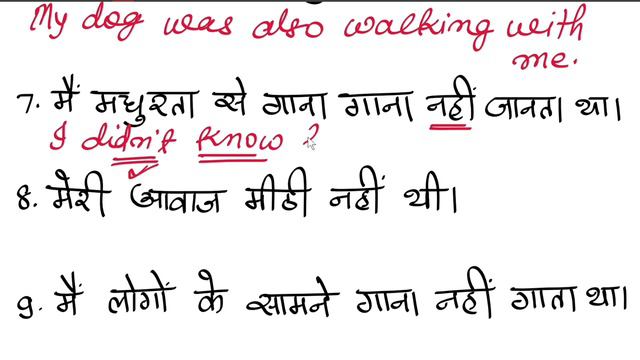 My dog was also walking with
me.
7. मैं मधुरता से गाना गाना नहीं जानता था।
I didn't know ?
8. मेरी आवाज मीठी नहीं थी।
9. मैं लोगों के सामने गाना नहीं गाता था।